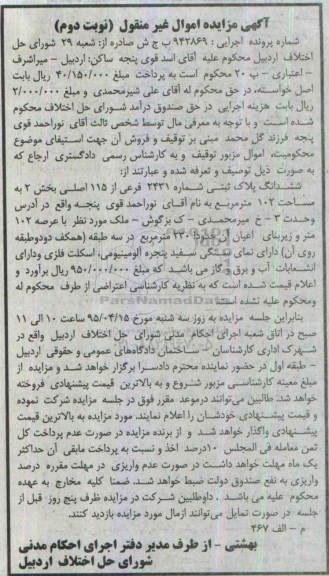 آگهی مزایده اموال غیر منقول (نوبت دوم)
شماره پرونده اجرایی : ۹۴۲۸۶۹ ب ج ش صادره از: شعبه ۲۹ شورای حل
اختلاف اردبیل محکوم علیه آقای اسد قوی پنجه ساکن: اردبیل - میراشرف
- اعتباری - پ ۲۰ محکوم است به پرداخت مبلغ ۴۰/۱۵۰/۰۰۰ ریال بابت
اصل خواسته، در حق محکوم له آقای علی شیرمحمدی و مبلغ ۲/۰۰۰/۰۰۰
ریال بابت هزینه اجرایی در حق صندوق درآمد شورای حل اختلاف محکوم
شده است و با توجه به معرفی مال توسط شخص ثالث آقای نوراحمد قوی
پنجه فرزند گل محمد مبنی بر توقیف و فروش آن جهت استیفای موضوع
محکومیت، اموال مزبور توقیف و به کارشناس رسمی دادگستری ارجاع که
به صورت ذیل توصیف و تعرفه شده و عبارتند از:
ششدانگ پلاک ثبتی شماره ۲۴۳۱ فرعی از ۱۱۵ اصلی بخش ۲ به
مساحت ۱۰۲ مترمربع به نام آقای نوراحمد قوی پنجه واقع در آدرس
وحدت ۳ - خ میرمحمدی - ک برگوش - ملک مورد نظر با عرصه ۱۰۲
متر و زیربنای اعیان آن حدود ۲۳۰ مترمربع در سه طبقه (همکف دودوطبقه
روی آن) دارای نمای سنگی سفید پنجره آلومینیومی، اسکلت فلزی ودارای
انشعابات آب و برق و گاز می باشد که مبلغ ۹۵۰/۰۰۰/۰۰۰ ریال برآورد و
اعلام قیمت شده است که به نظریه کارشناسی اعتراضی از طرف محکوم له
ومحکوم علیه نشده است.
بنابراین جلسه مزایده به روز: سه شنبه مورخ ۹۵/۰۴/۱۵ ساعت ۱۰ الی ۱۱
صبح در اتاق شعبه اجرای احکام مدنی شورای حل اختلاف اردبیل واقع در
شهرک اداری کارشناسان - ساختمان دادگاههای عمومی و حقوقی اردبیل
- طبقه اول در حضور نماینده محترم دادسرا برگزار خواهد شد و مزایده از
مبلغ معینه کارشناسی مزبور شروع و به بالاترین قیمت پیشنهادی فروخته
خواهد شد. طالبین می‌توانند درموعد مقرر فوق در جلسه مزایده شرکت نموده
و قیمت پیشنهادی خودشان را اعلام نمایند. مورد مزایده به بالاترین قیمت
پیشنهادی واگذار خواهد شد و از برنده مزایده در صورت عدم پرداخت کل
ثمن معامله فی المجلس ۱۰درصد اخذ و نسبت به پرداخت مابقی آن حداکثر
یک ماه مهلت خواهد داشت در صورت عدم واریزی در مهلت مقرره درصد
واریزی به نفع صندوق دولت ضبط خواهد شد. ضمنا کلیه مخارج به عهده
محکوم علیه می باشد . داوطلبین شرکت در مزایده ظرف پنج روز قبل از
جلسه در صورت تمایل می‌توانند ازمال مورد مزایده بازدید کنند.
م - الف ۴۶۷
بهشتی - از طرف مدیر دفتر اجرای احکام مدنی
شورای حل اختلاف اردبیل